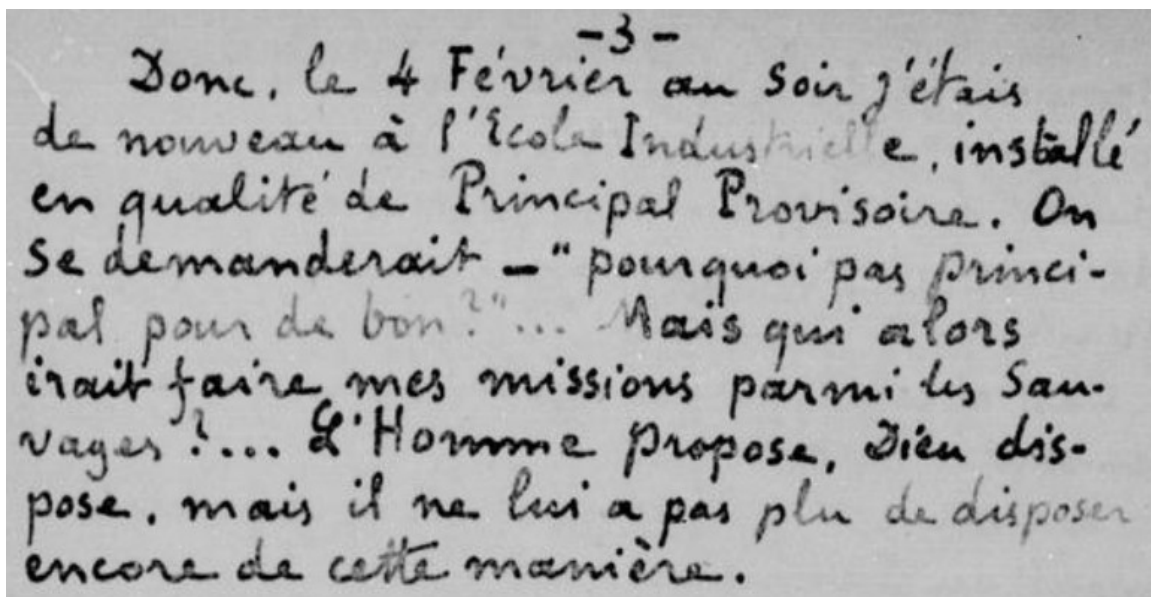 -3-
Donc, le 4 Février au Soir j'étais
de nouveau à l'Ecole Industrielle, installé
en qualité de Principal Provisoire. On
se demanderait — "pourquoi pas princi-
pal pour de bon?"... Mais qui alors
irait faire mes missions parmi les Sau-
vages?... L'Homme propose, Dieu dis-
pose, mais il ne lui a pas plu de disposer
encore de cette manière.